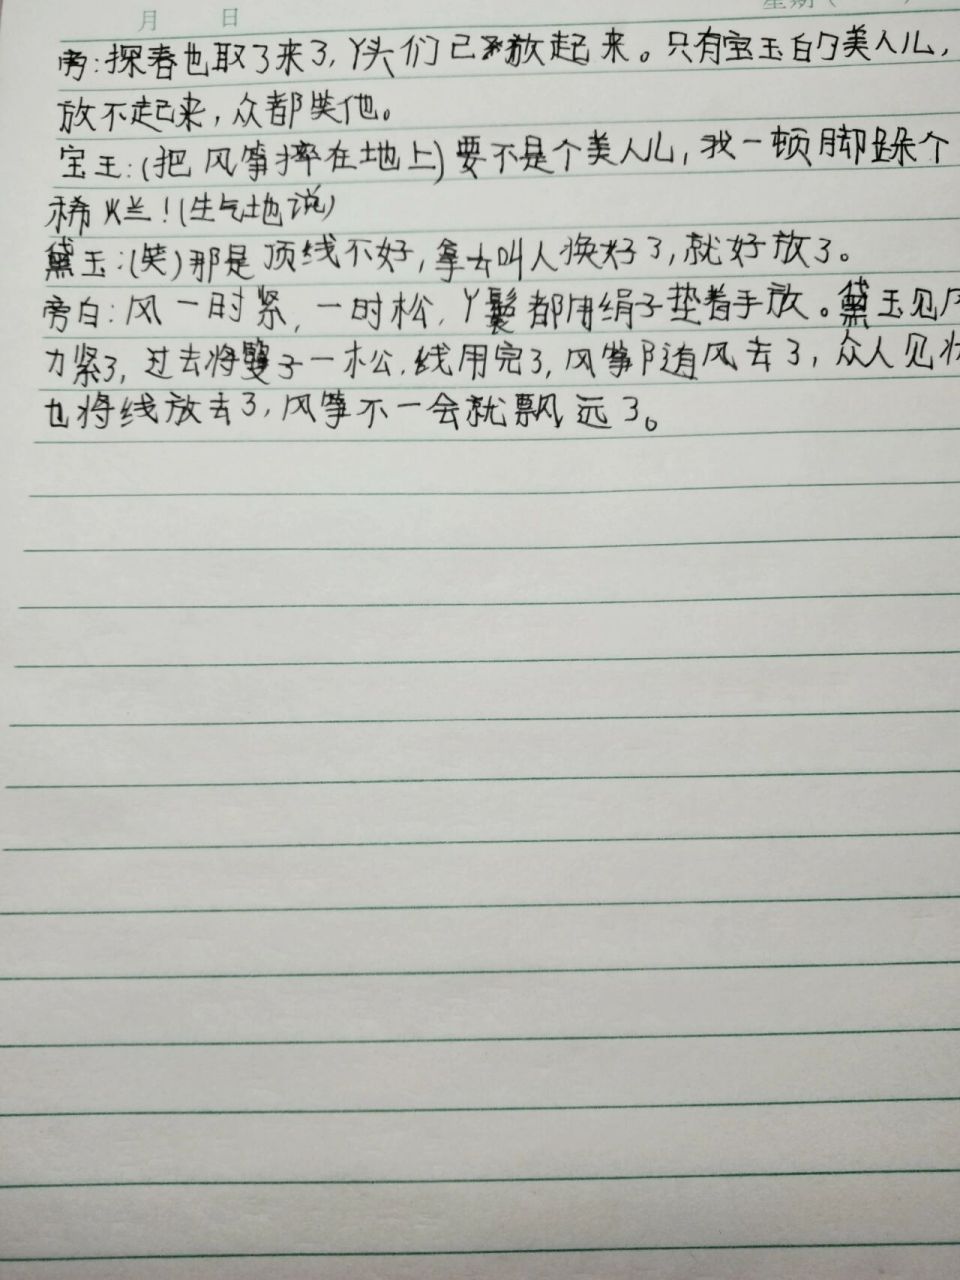 月 日 星期(
旁:探春也取了来了,丫头们已放起来。只有宝玉的美人儿,
放不起来,众都笑他。
宝玉:(把风筝摔在地上)要不是个美人儿,我一顿脚跺个
稀烂!(生气地说)
黛玉:(笑)那是顶线不好,拿去叫人换好了,就好放了。
旁白:风一时紧,一时松,丫鬟都用绢子垫着手放。黛玉见风
力紧了,过去将籰子一松,线用完了,风筝随风去了,众人见状
也将线放去了,风筝不一会就飘远了。